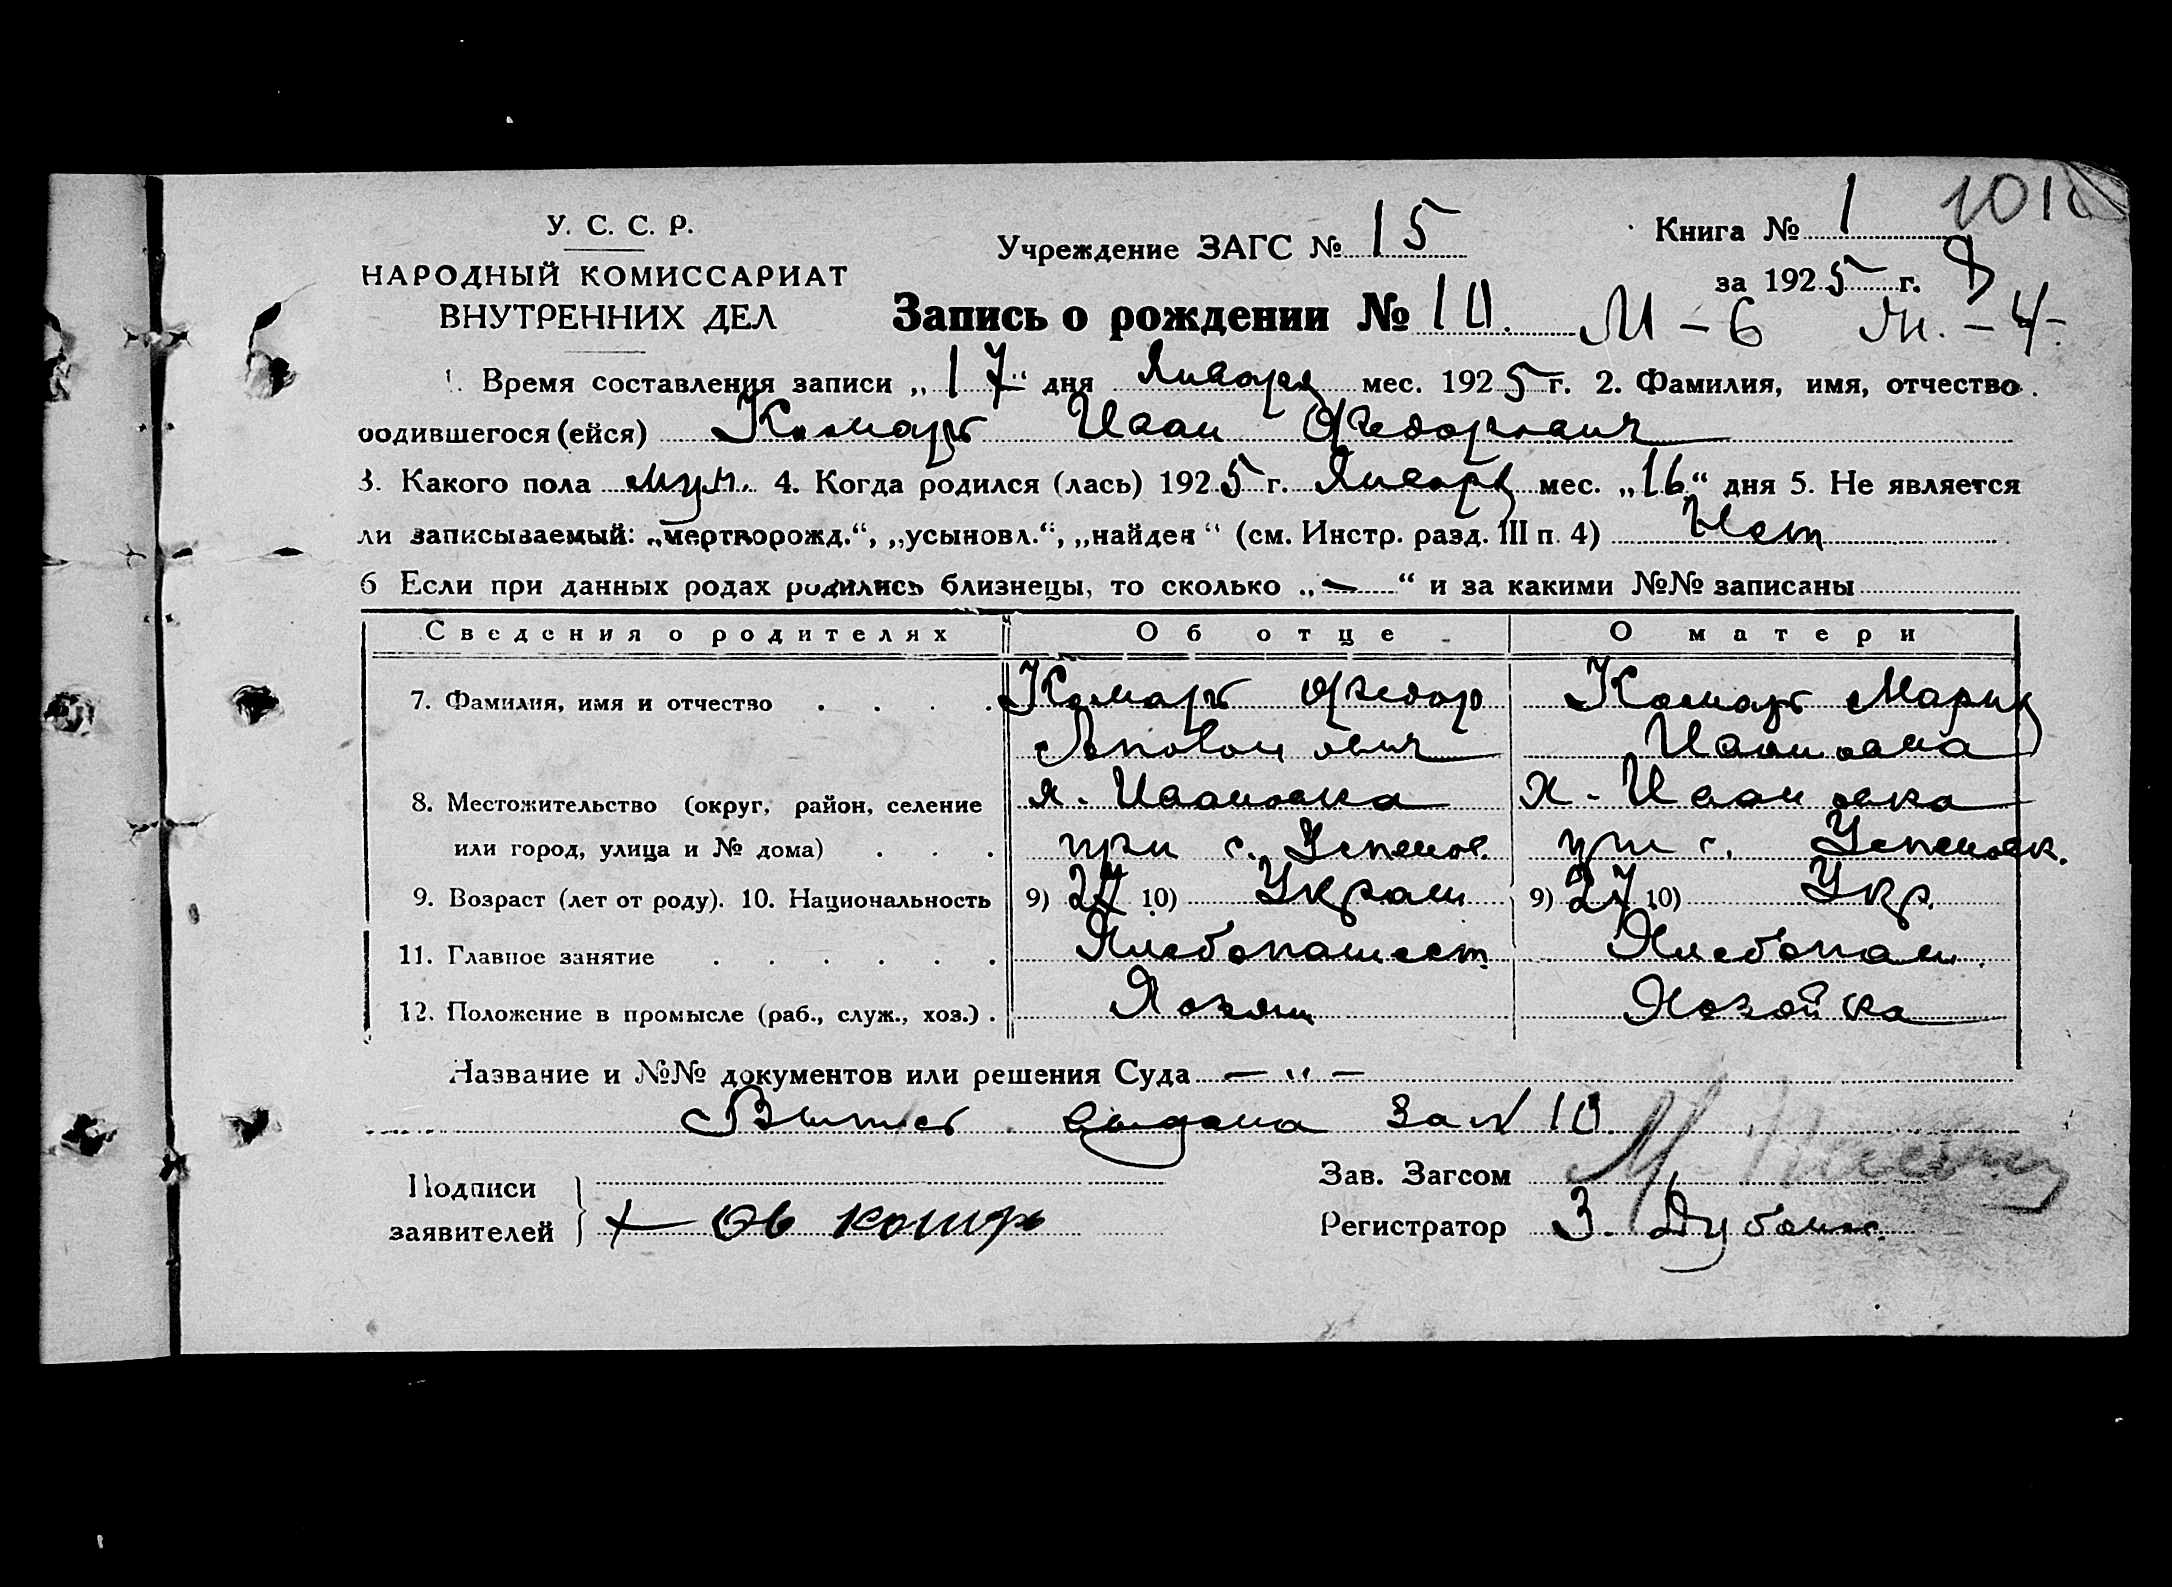 У. С. С. Р.
НАРОДНЫЙ КОМИССАРИАТ
ВНУТРЕННИХ ДЕЛ
Учреждение ЗАГС № 15
Книга № 1
101
за 1925 г.
8
Запись о рождении № 10.
М - 6 Ж. - 4
1. Время составления записи „17“ дня Января мес. 1925 г. 2. Фамилия, имя, отчество
родившегося (ейся) Комарь Иван Федорович
3. Какого пола муж. 4. Когда родился (лась) 1925 г. Января мес. „16“ дня 5. Не является
ли записываемый: „мертворожд.“, „усыновл.“, „найден“ (см. Инстр. разд. III п. 4) Нет
6 Если при данных родах родились близнецы, то сколько „—“ и за какими №№ записаны
Сведения о родителях Об отце О матери
7. Фамилия, имя и отчество . . . . Комарь Федор Комарь Мария
Ивановна
8. Местожительство (округ, район, селение х. Ивановка х. Ивановка
или город, улица и № дома) . . . при с. Успенов. при с. Успеновк.
9. Возраст (лет от роду). 10. Национальность 9) 27 10) Украин 9) 27 10) Укр.
11. Главное занятие . . . . . . Хлебопашест. Хлебопаш.
12. Положение в промысле (раб., служ., хоз.) . Хозяин Хозяйка
Название и №№ документов или решения Суда — „ —
Выпись выдана за № 10.
Подписи
заявителей
+ Ов комар
Зав. Загсом
Регистратор З. Дубовик